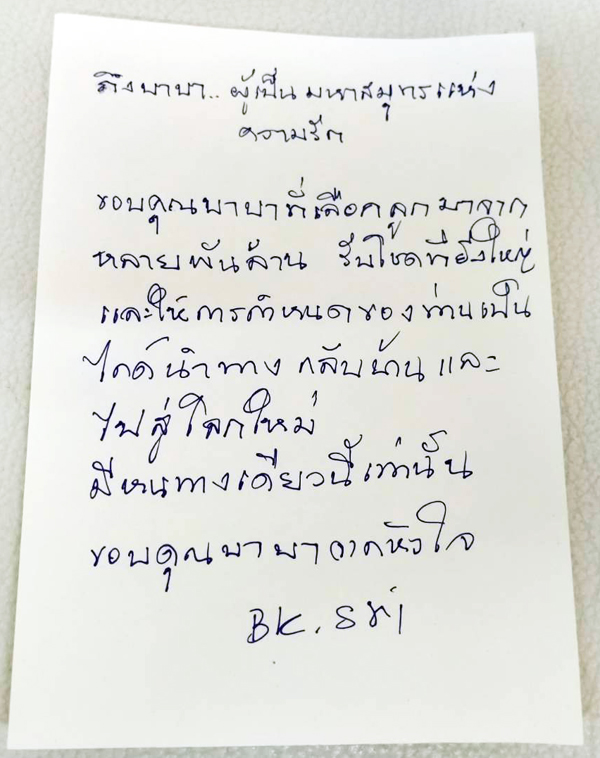 ถึงบาบา.. ผู้เป็น มหาสมุทรแห่ง
ความรัก
ขอบคุณบาบาที่เลือกลูกมาจาก
หลายพันล้าน รับโชคที่ยิ่งใหญ่
และให้การกำหนดของท่านเป็น
ไกด์นำทาง กลับบ้าน และ
ไปสู่โลกใหม่
มีหนทางเดียวนี้เท่านั้น
ขอบคุณบาบาจากหัวใจ
BK. Sri